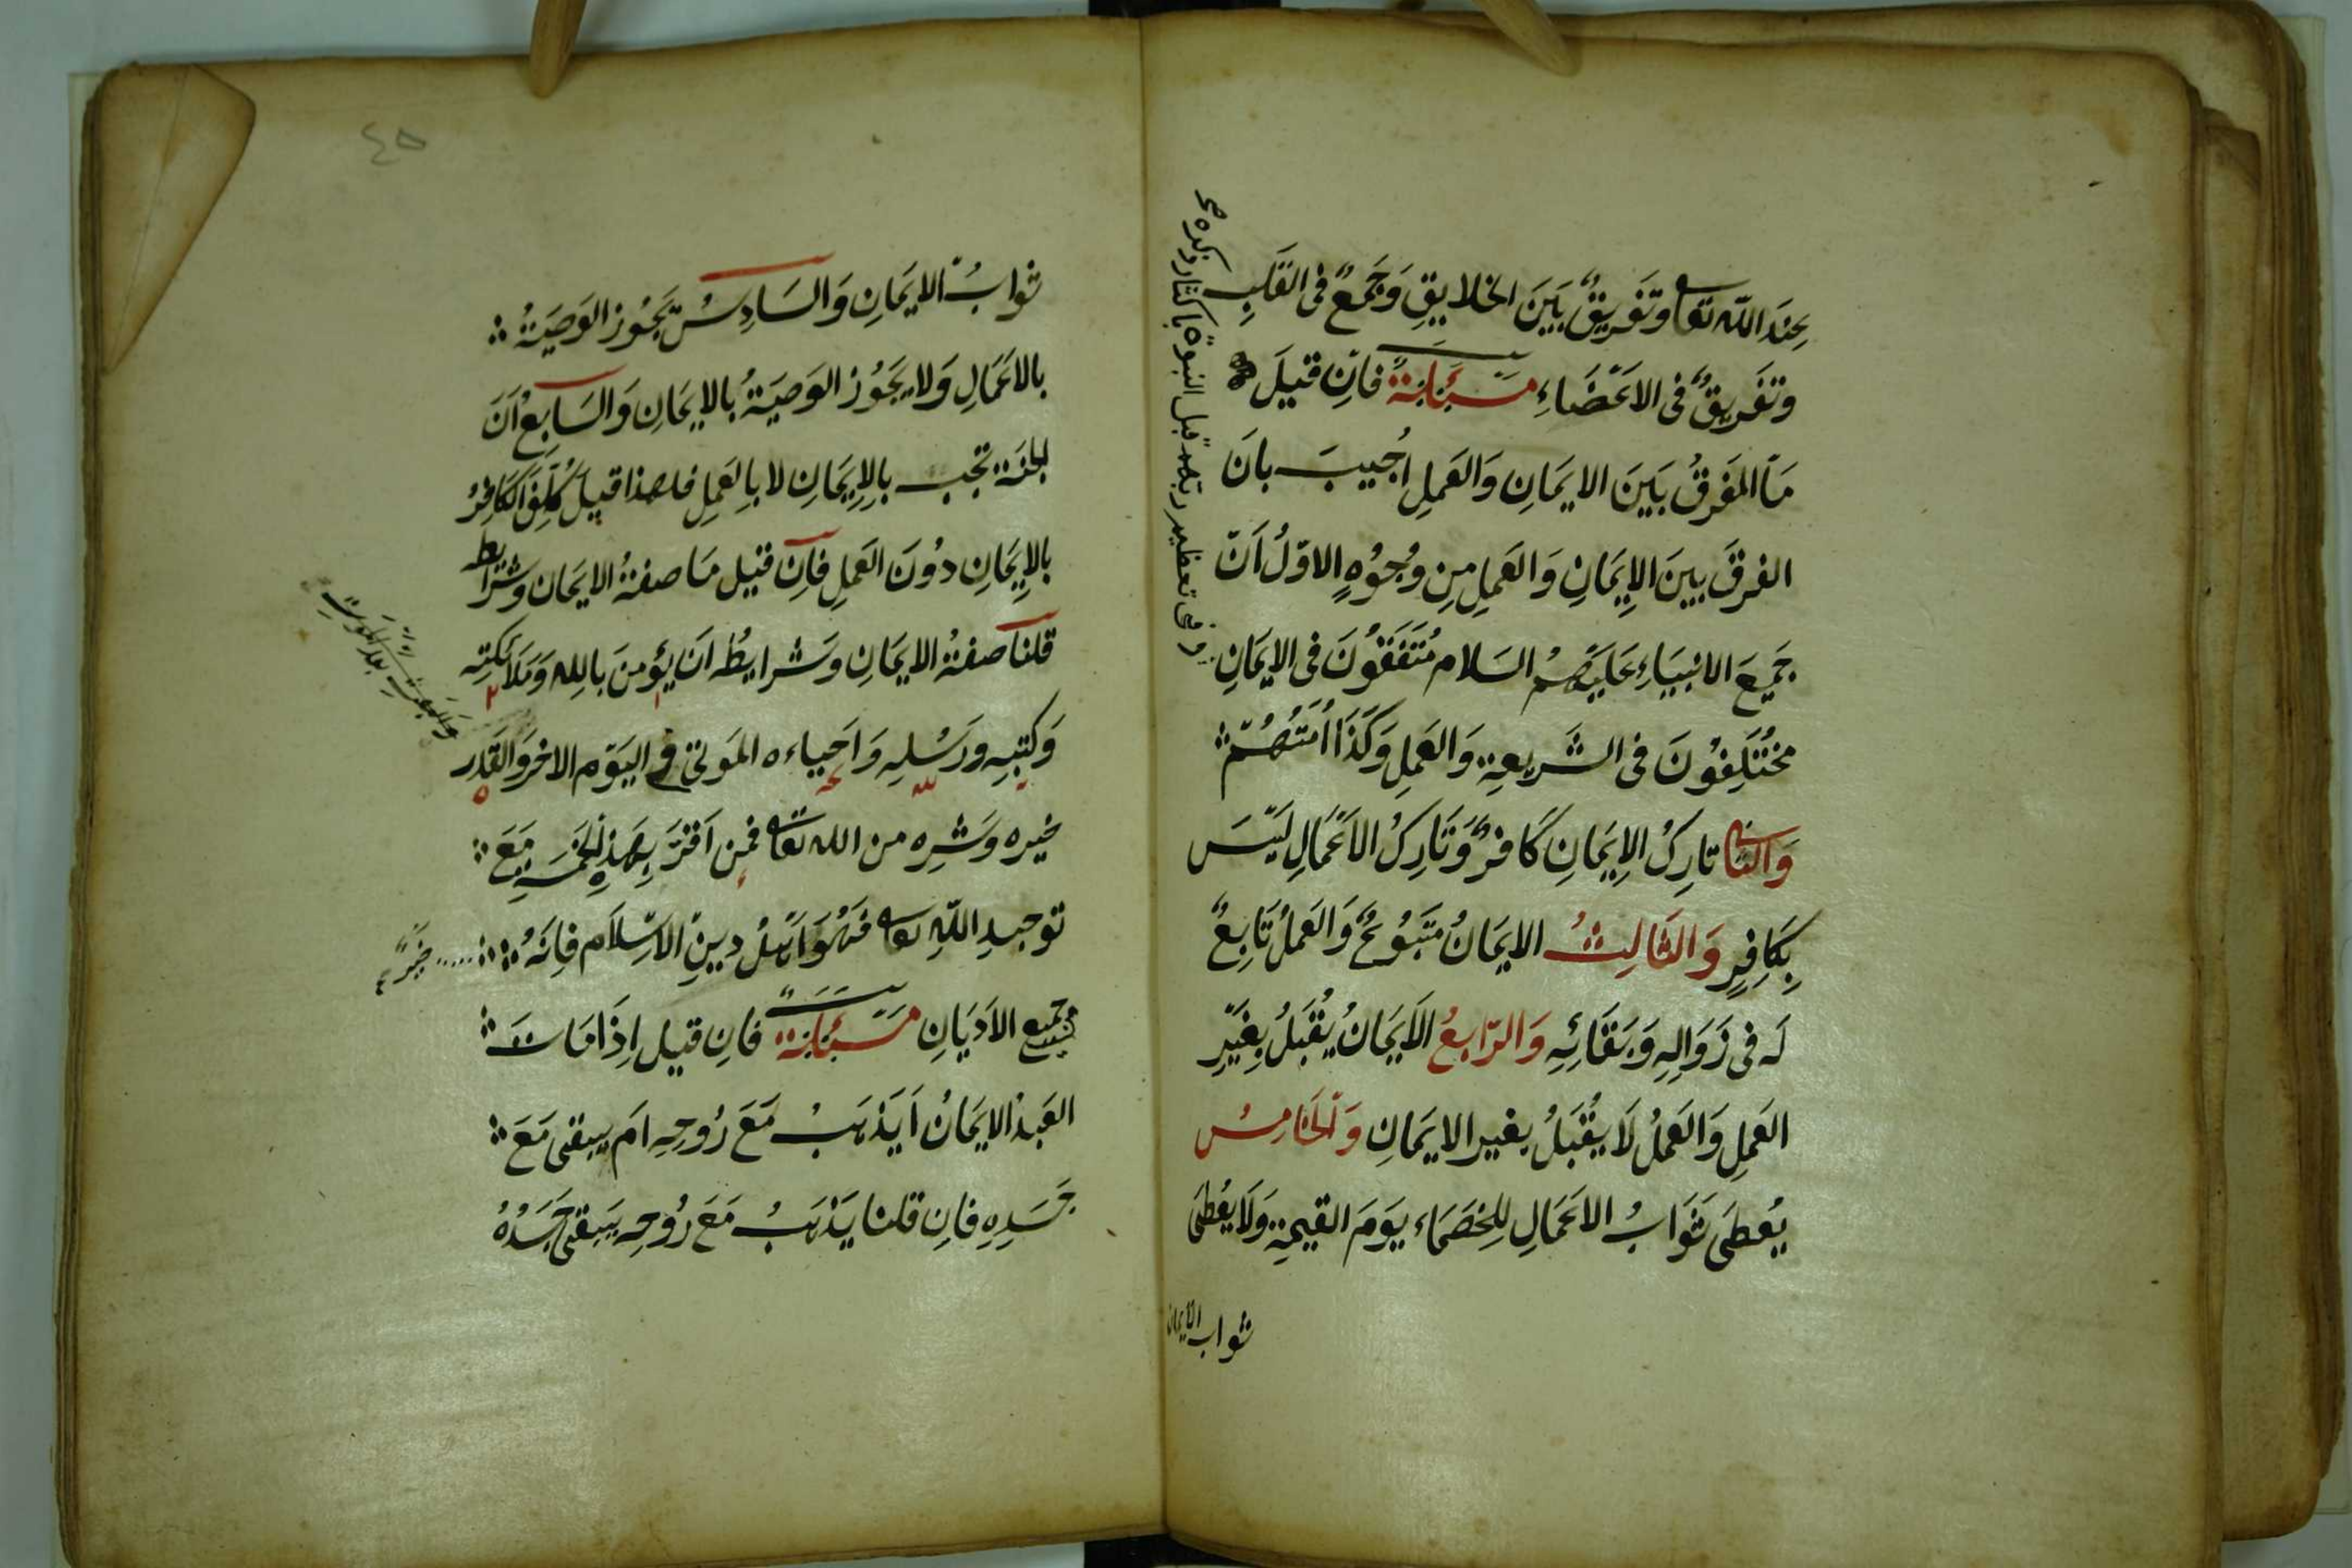 عِندَ اللّٰه تعا وتَفَريقٌ بَينَ الخلايِقِ وَجَمعٌ فى القَلبِ
وتَفَريقٌ فى الاَعضَاءِ مسَئَلةٌ فاِن قيلَ
مَا الفَرقُ بَينَ الايمَانِ وَالعَملِ اُجيبَ بانَ
الفرقَ بينَ الاِيمَانِ وَالعَملِ مِن وُجُوُهٍ الاوّلُ اَنّ
جَميعَ الانبيَاءِ عَليَهمُ السَلام مُتَفَقُونَ فى الايمَانِ
مختَلِفوُنَ فى الشَريعةِ وَالعَملِ وَكَذَا اُمَتُهُم
وَالثانى تارِكُ الاِيمَانِ كَافرٌ وَتَارِكُ الاَعمَالِ ليَسَ
بِكَافِرٍ وَالثَالِثُ الايمَانُ متَبوُعٌ وَالعَملُ تَابِعٌ
لَه فى زَوَالِهِ وَبَقَائِهِ وَالرَابعُ الاَيمَانُ يُقبَلُ بِغَيرِ
العَملِ وَالعَملُ لَا يُقبَلُ بغير الايمَانِ وَالخَامِسُ
يُعطَى ثَوَابُ الاَعمَالِ لِلخصَمَاء يَومَ القيمةِ وَلَا يُعطَى
ثواب الايمان
٤٥
ثوابُ الايمَانِ وَالسَادِسُ يَجُوز الوَصيَةُ
بالاَعمَالِ وَلا يجَوُز الوَصيَةُ بالايمَانِ وَالسَابعُ اَنَ
الجنَة تجب بالاِيمَانِ لا بالِعَملِ فلهذا قيلَ كُلِفَ الكَافِرُ
بالاِيمَانِ دوُنَ العَملِ فاِن قيل مَا صفةُ الايمَان وشرَائطه
قلنا صفةُ الايمَانِ وَشرايطُه اَن يؤمنَ باللِه وَمَلَائكتِه
وَكتبِه ورَسُلِه وَاحياءه المَوتى فى اليَوم الاخر وَالقَدر
خيره وَشرِه من اللّٰه تعا فمن اَقرَ بهَذِه الخمَسة مَعَ
توحيدِ اللّٰه تعا فهُوَ اهَلُ دينِ الاسِلَام فاِنَه خيَرٌ
جميع الاَديَانِ مسَئَلةٌ فاِن قيل اِذَا مَاتَ
العَبدُ الايمَانُ اَيذهَبُ مَعَ رُوحِهِ اَم يبقى مَعَ
جَسَدِهِ فاِن قلنا يَذهَبُ مَعَ رُوحِه يَبقى جَسَدُهُ